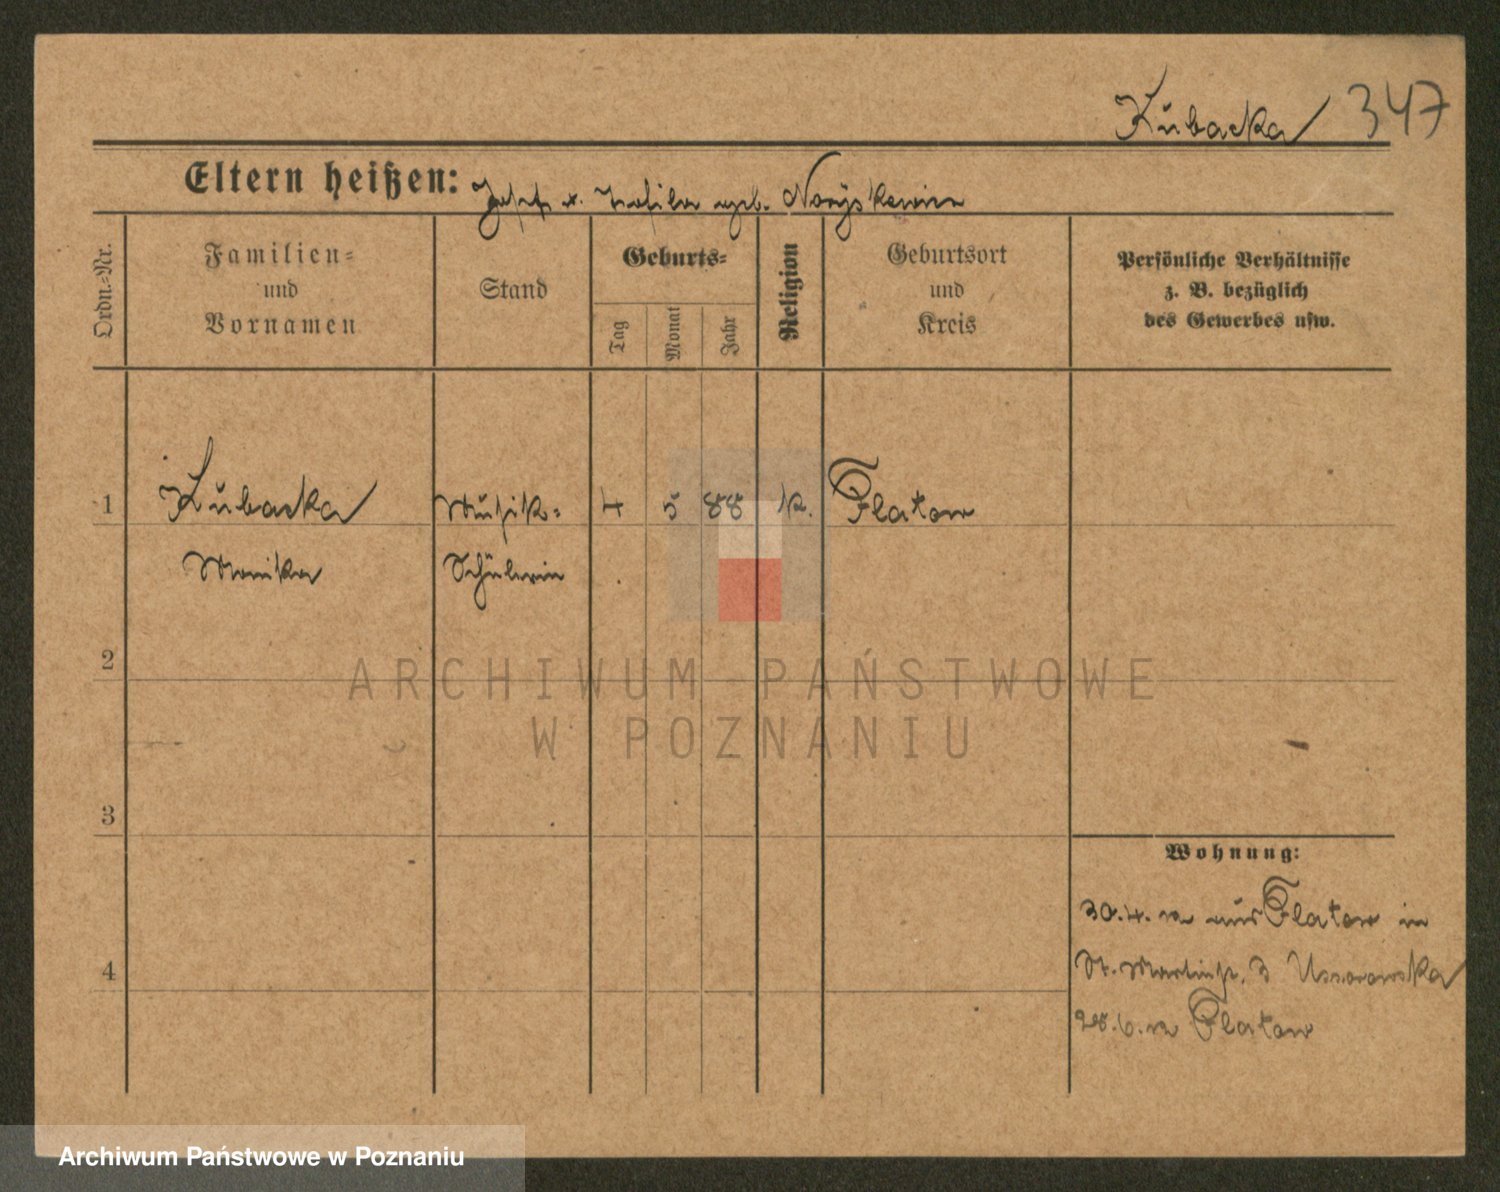 Kubacka 347
Eltern heißen: Josef u. geb.
Ordn.-Nr.
Familien-
und
Vornamen
Stand
Geburts-
Tag
Monat
Jahr
Religion
Geburtsort
und
Kreis
Persönliche Verhältnisse
z. B. bezüglich
des Gewerbes usw.
1 Kubacka Musik- 4 5 88 k. Flatow
Monika Schülerin
2
ARCHIWUM PAŃSTWOWE
W POZNANIU
3
Wohnung:
30.4. aus Flatow in
4 St. Martinstr. 3
28.6. Flatow
Archiwum Państwowe w Poznaniu